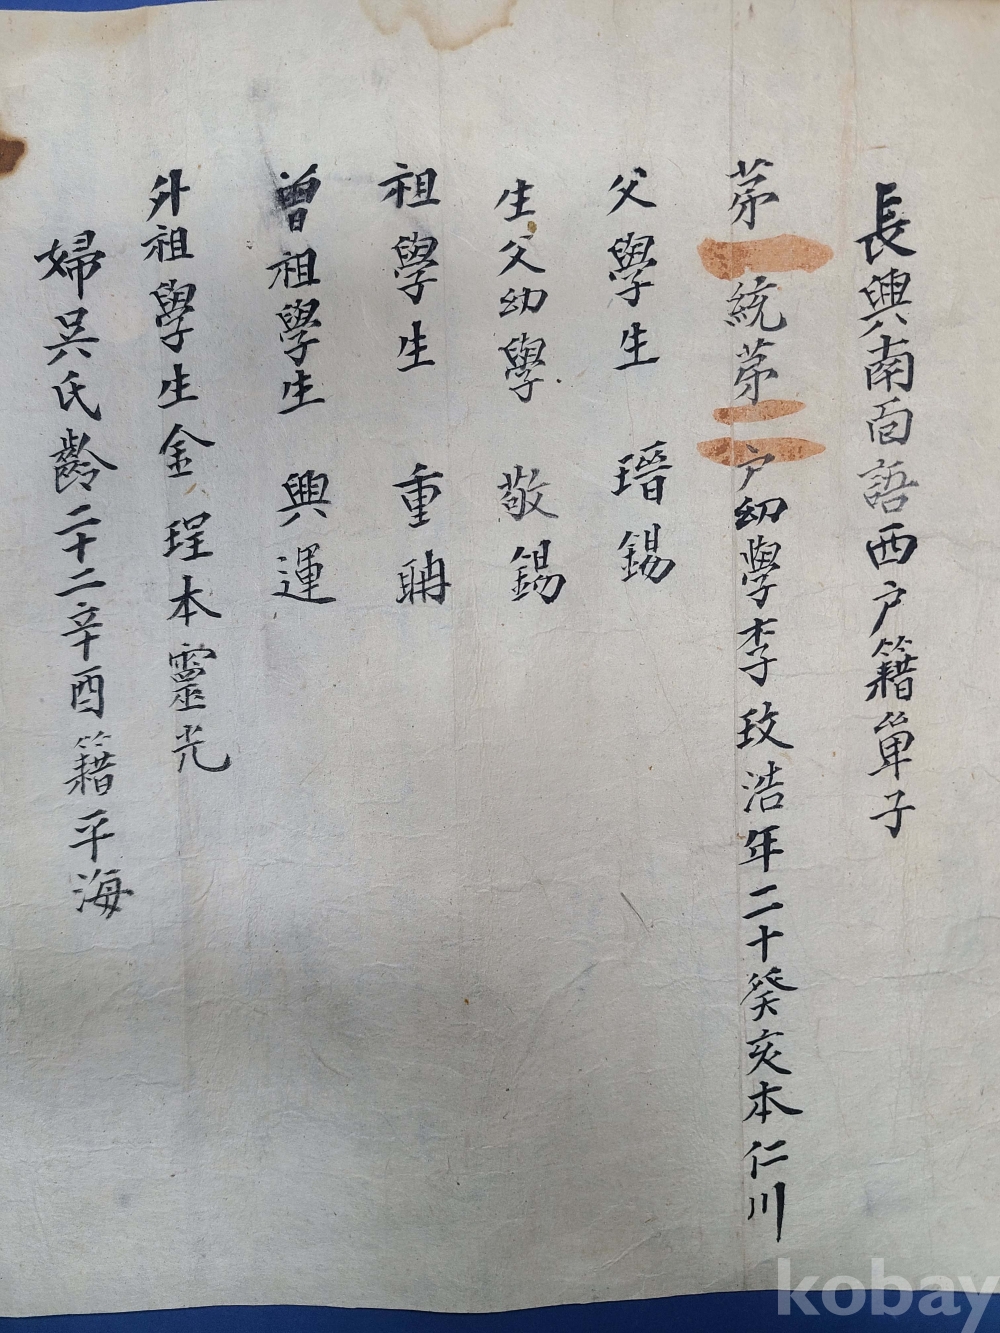 長興南面語西戶籍單子
苐一統苐二戶幼學李玟浩年二十癸亥本仁川
父學生 瑨錫
生父幼學 敬錫
祖學生 重聃
曾祖學生 興運
外祖學生金 珵本靈光
婦吳氏齡二十二辛酉籍平海
kobay